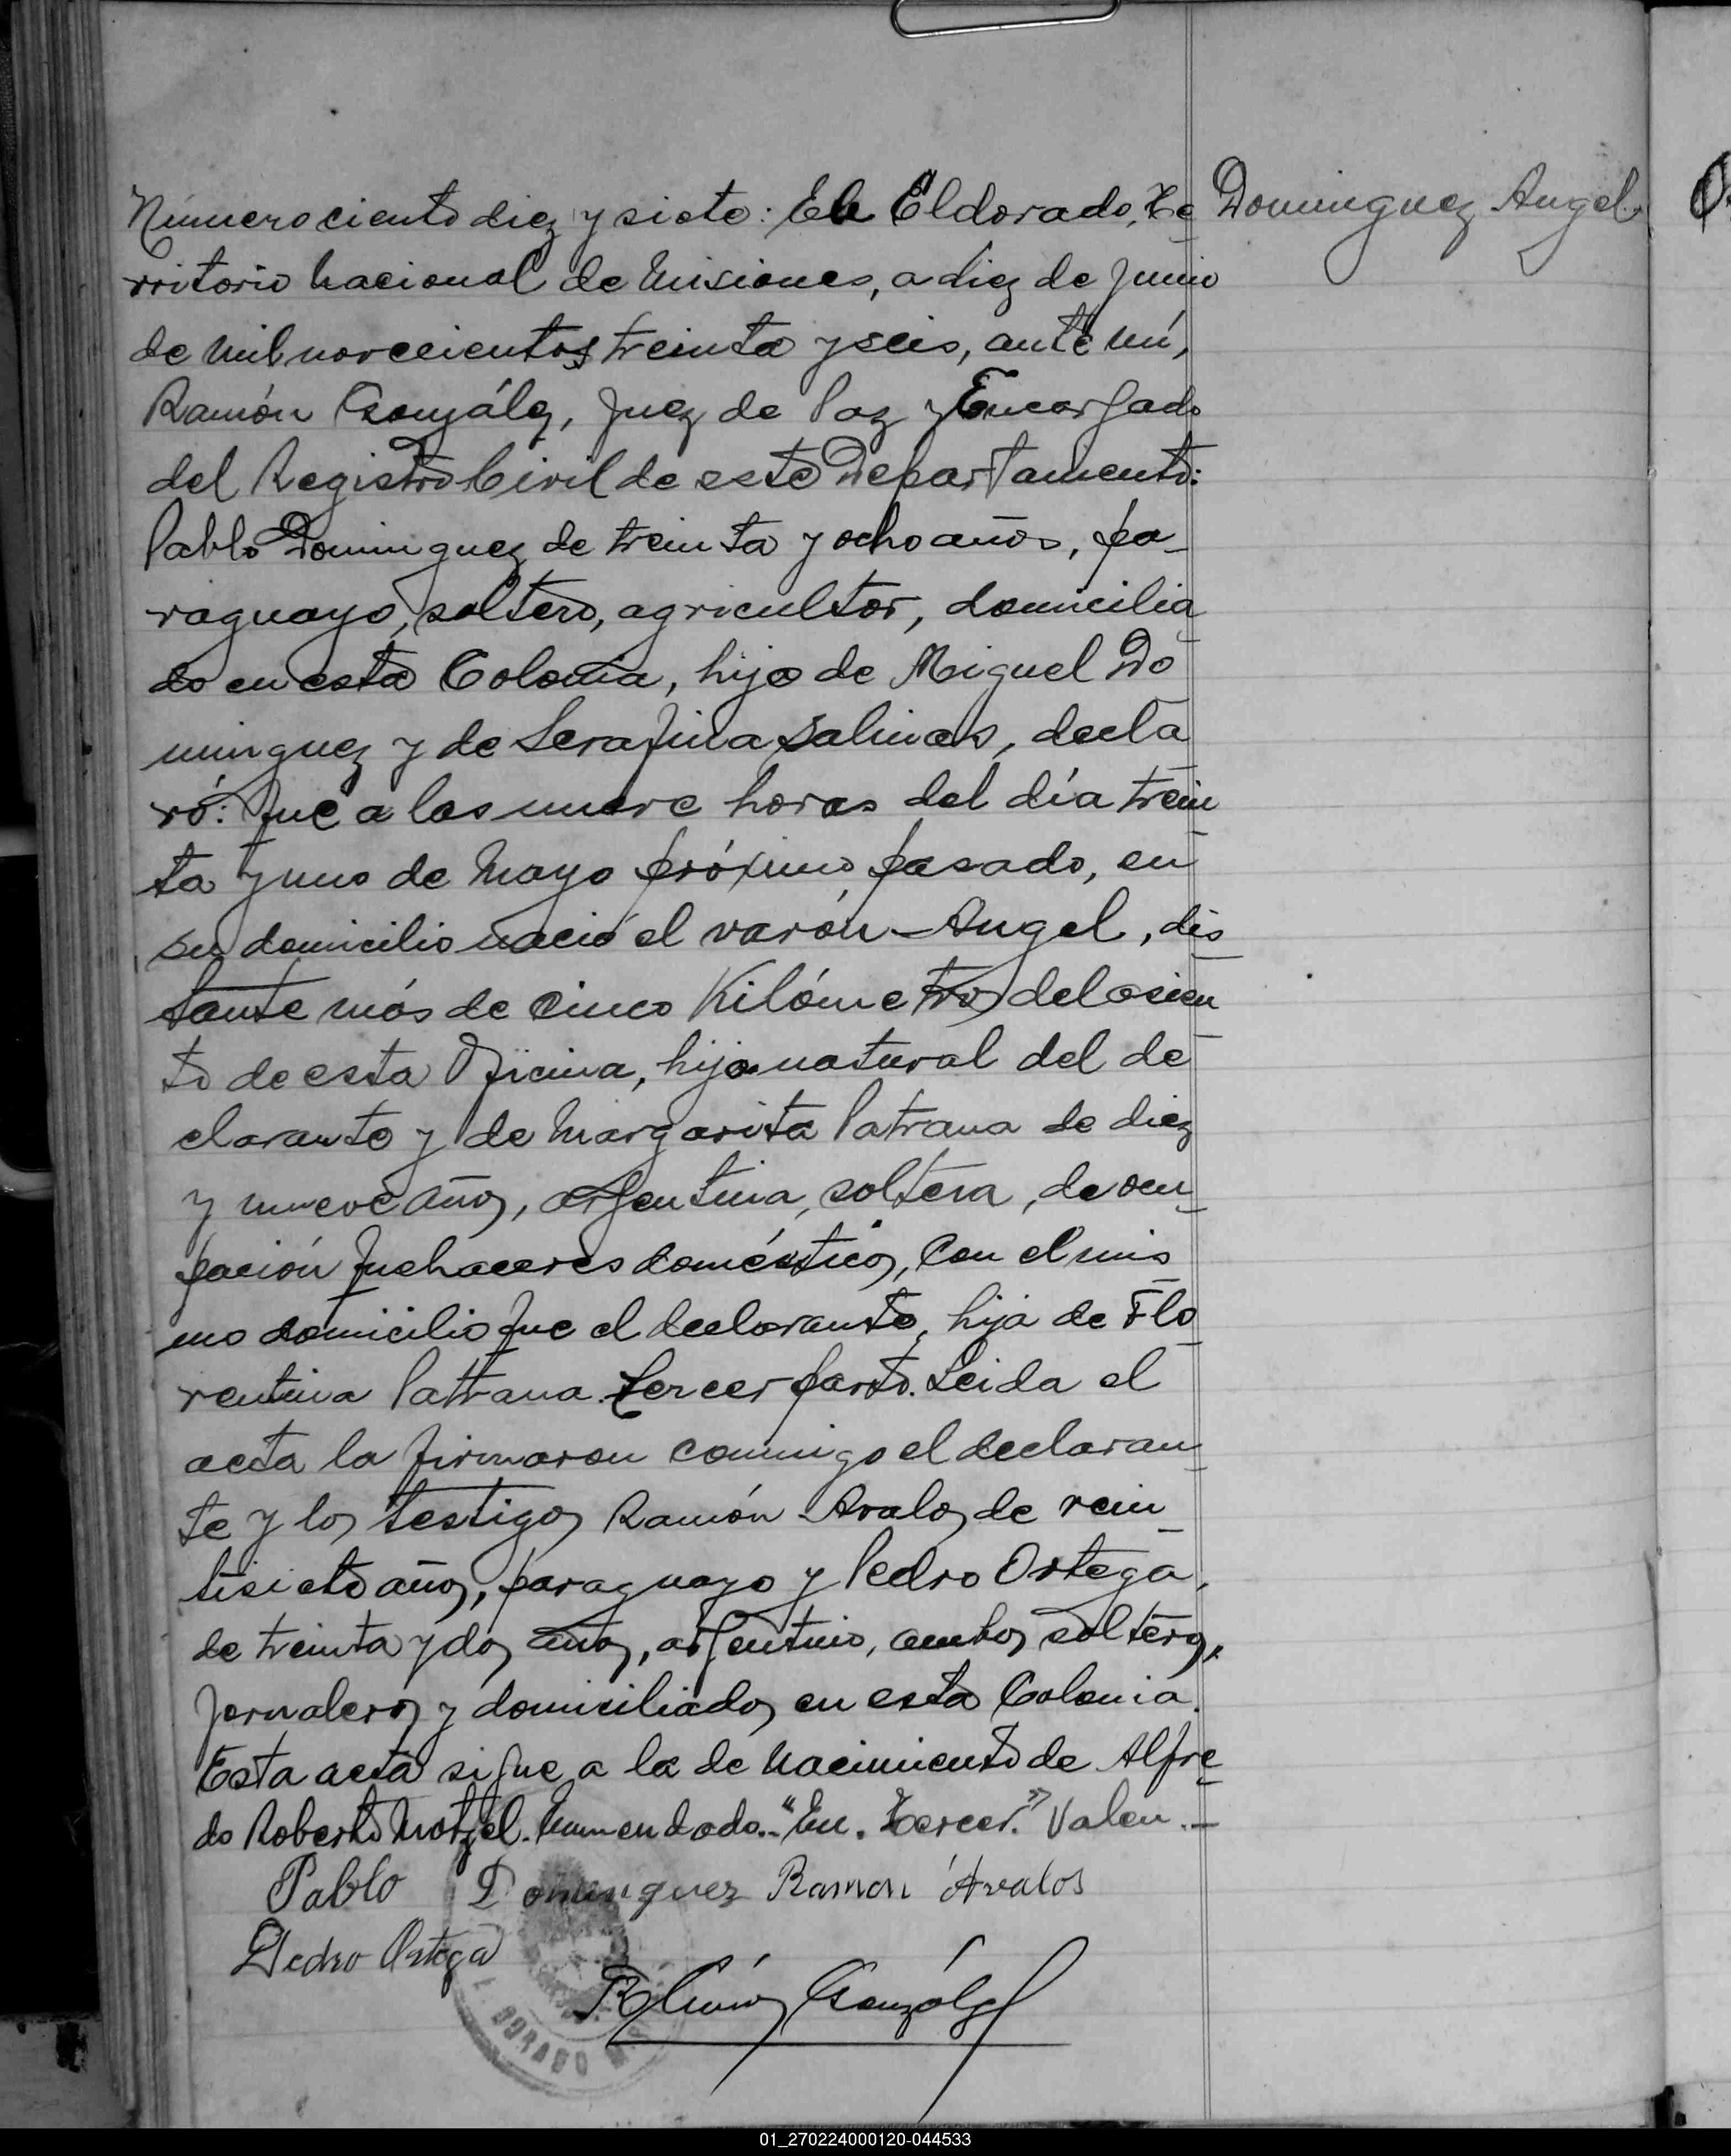 Número ciento diez y siete: En Eldorado, Te
Dominguez Angel
rritorio Nacional de Misiones, a diez de Junio
de mil novecientos treinta y seis, ante mí,
Ramón Gonzálz, Juez de Paz y Encargado
del Registro Civil de este Departamento:
Pablo Dominguez de treinta y ocho años, pa_
raguayo, soltero, agricultor, domicilia
do en esta Colonia, hijo de Miguel Do
minguez y de Serafina Salinas, decla
ró: Que a las nueve horas del día trein
ta y uno de Mayo próximo pasado, en
su domicilio nació el varón Angel, dis
tante más de cinco Kilómetros del asien
to de esta Oficina, hijo natural del de
clarante y de Margarita Patrana de diez
y nueve años, argentina, soltera, de ocu_
pación quehaceres domésticos, con el mis
mo domicilio que el declarante, hija de Flo
rentina Patrana. Tercer parto. Leida el
acta la firmaron conmigo el declaran
te y los testigos Ramón Avalos de vein_
tisiete años, paraguayo y Pedro Ortega,
de treinta y dos años, argentino, ambos solteros,
jornaleros y domiciliados en esta Colonia.
Esta acta sigue a la de Nacimiento de Alfre
do Roberto Motzel. Enmendado. "En. Tercer." Valen.—
Pablo Dominguez Ramon Avalos
Pedro Ortega
Ramón Gonzálz
DORADO
01_270224000120-044533